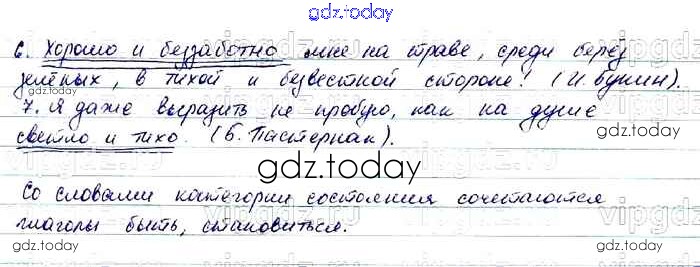 gdz.today
6. Хорошо и беззаботно мне на траве, среди берёз
зелёных, в тихой и безвестной стороне! (И. Бунин).
gdz.today
7. Я даже выразить не пробую, как на душе
светло и тихо. (Б. Пастернак).
gdz.today
Со словами категории состояния сочетаются
глаголы быть, становиться.
gdz.today
gdz.today